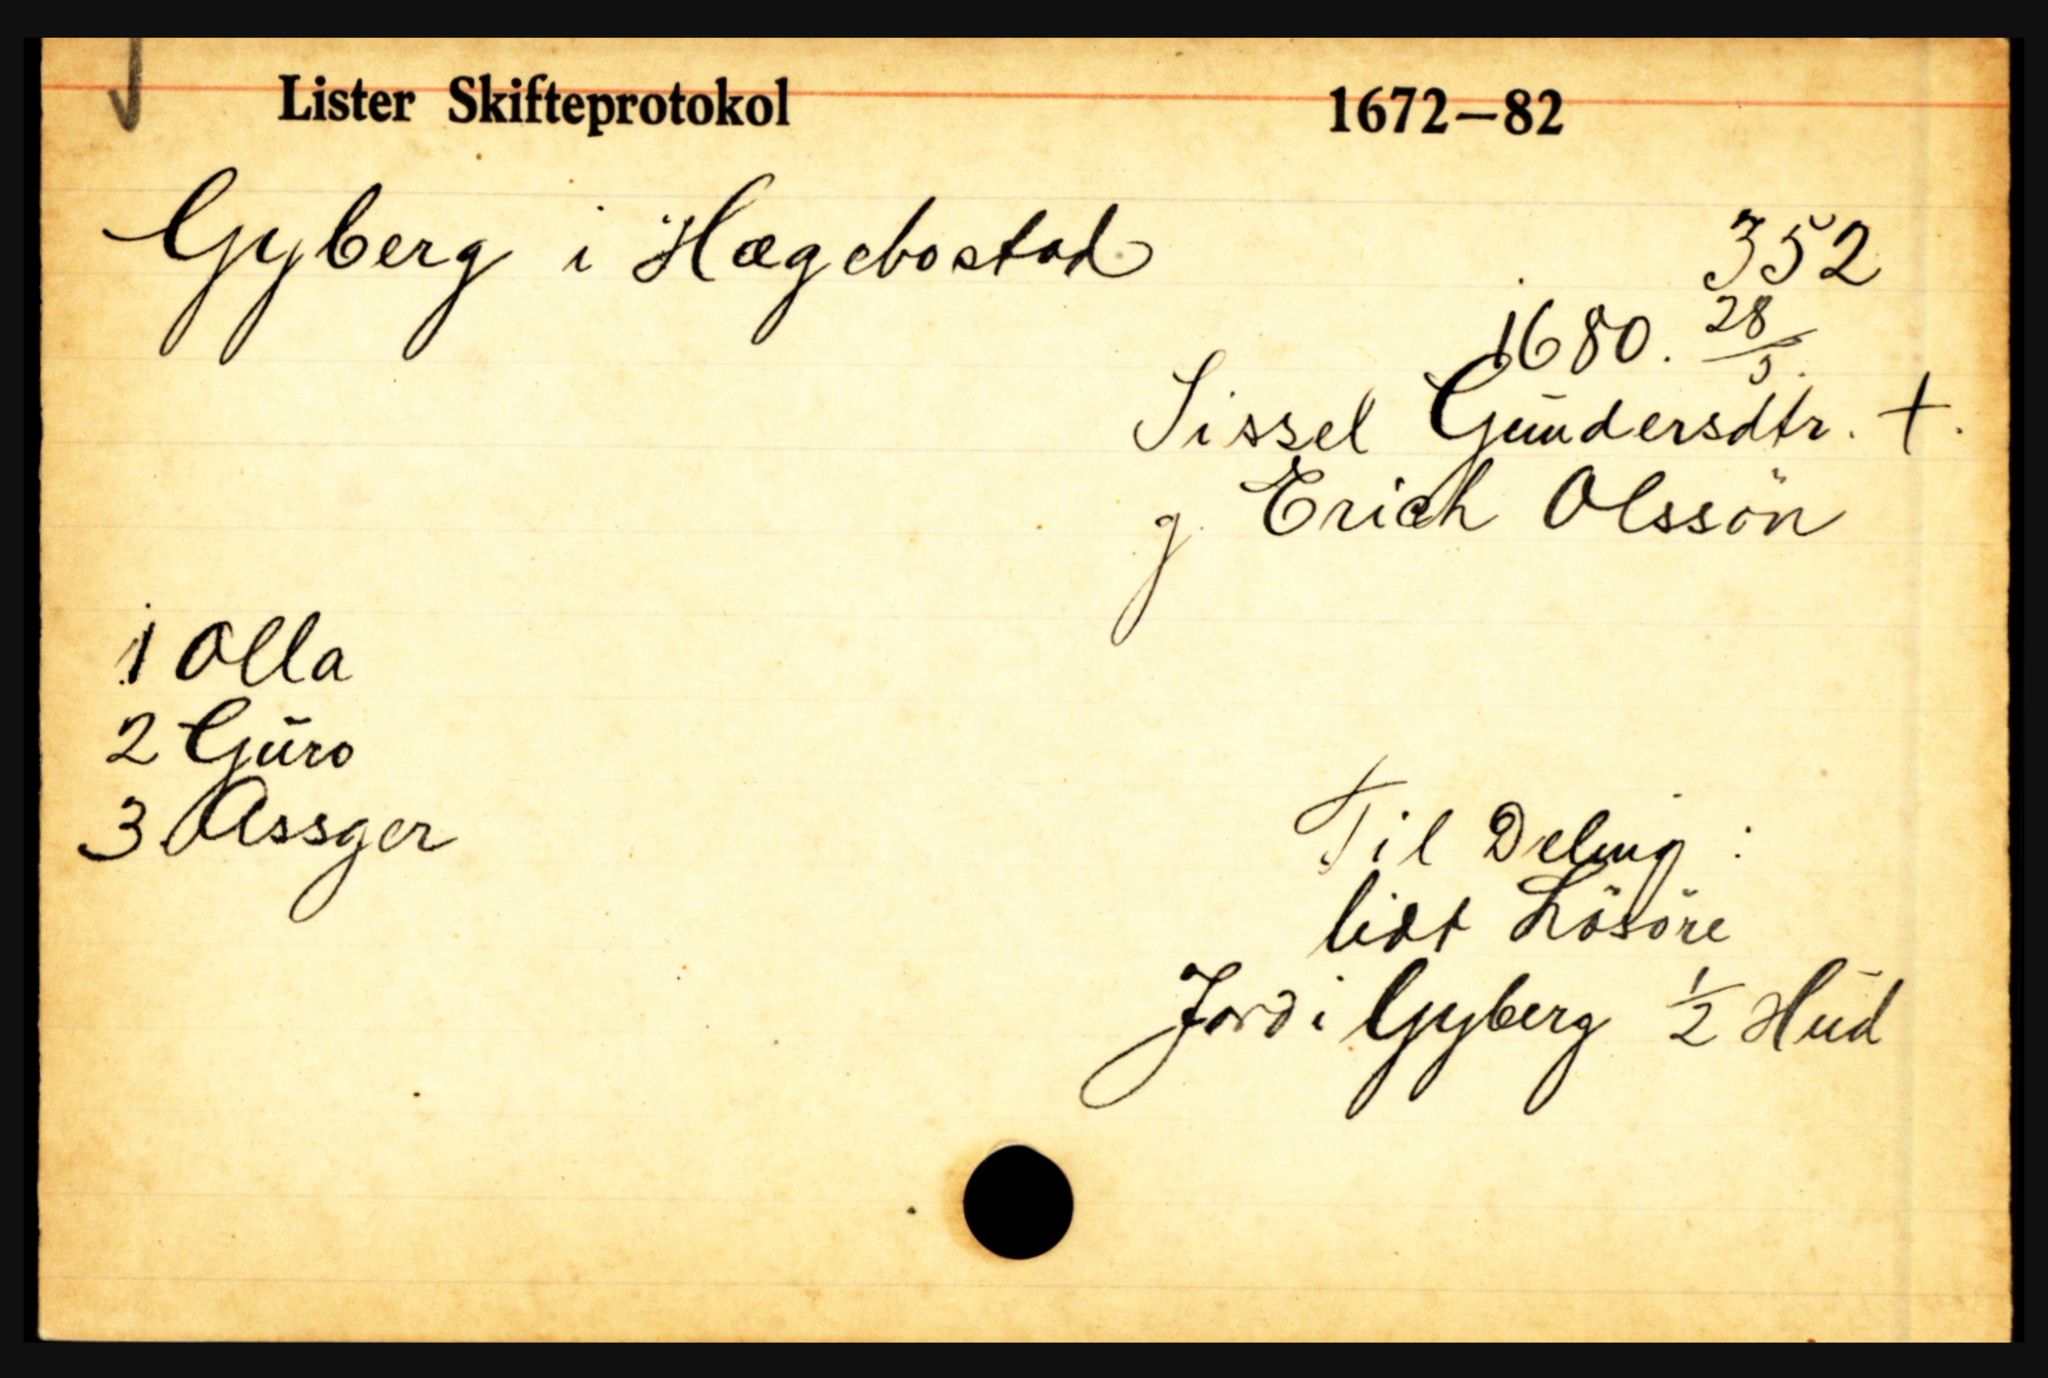 Lister Skifteprotokol 1672—82
Gyberg i Hægebostad
352
1680. 28/5.
Sissel Gundersdtr. +.
g. Erich Olssön
1 Olla
2 Guro
3 Assger
Til Deling:
lidt Lösöre
Jord i Gyberg 1/2 Hud